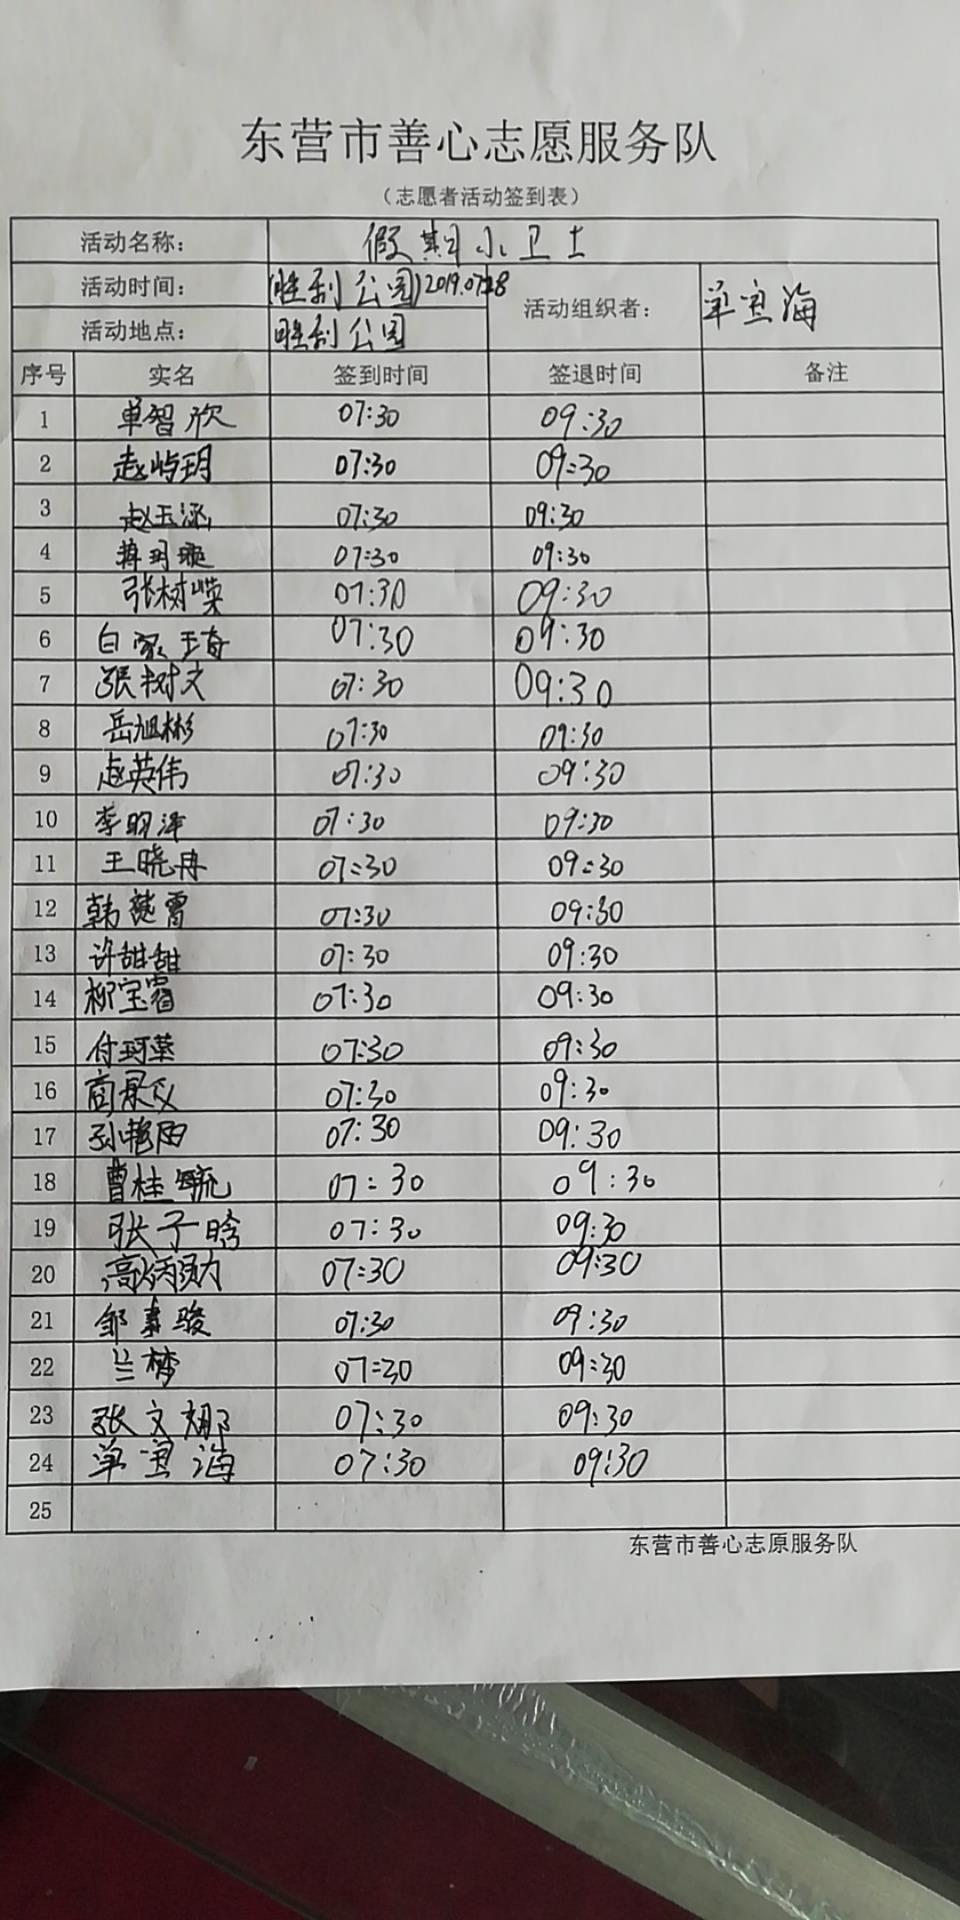 东营市善心志愿服务队
（志愿者活动签到表）
活动名称： 假期小卫士
活动时间： (胜利公园)2019.07.28 活动组织者： 单宝海
活动地点： 胜利公园
序号 实名 签到时间 签退时间 备注
1 单智欣 07:30 09:30
2 赵屿玥 07:30 09:30
3 赵玉涵 07:30 09:30
4 07:30 09:30
5 张树嵘 07:30 09:30
6 白家琦 07:30 09:30
7 張树文 07:30 09:30
8 岳旭彬 07:30 09:30
9 赵英伟 07:30 09:30
10 李明泽 07:30 09:30
11 王晓冉 07:30 09:30
12 07:30 09:30
13 许甜甜 07:30 09:30
14 柳宝霜 07:30 09:30
15 07:30 09:30
16 商景义 07:30 09:30
17 孙艳阳 07:30 09:30
18 曹桂毓 07:30 09:30
19 张子晗 07:30 09:30
20 高炳勋 07:30 09:30
21 07:30 09:30
22 兰梦 07:30 09:30
23 张文娜 07:30 09:30
24 单宝海 07:30 09:30
25
东营市善心志原服务队